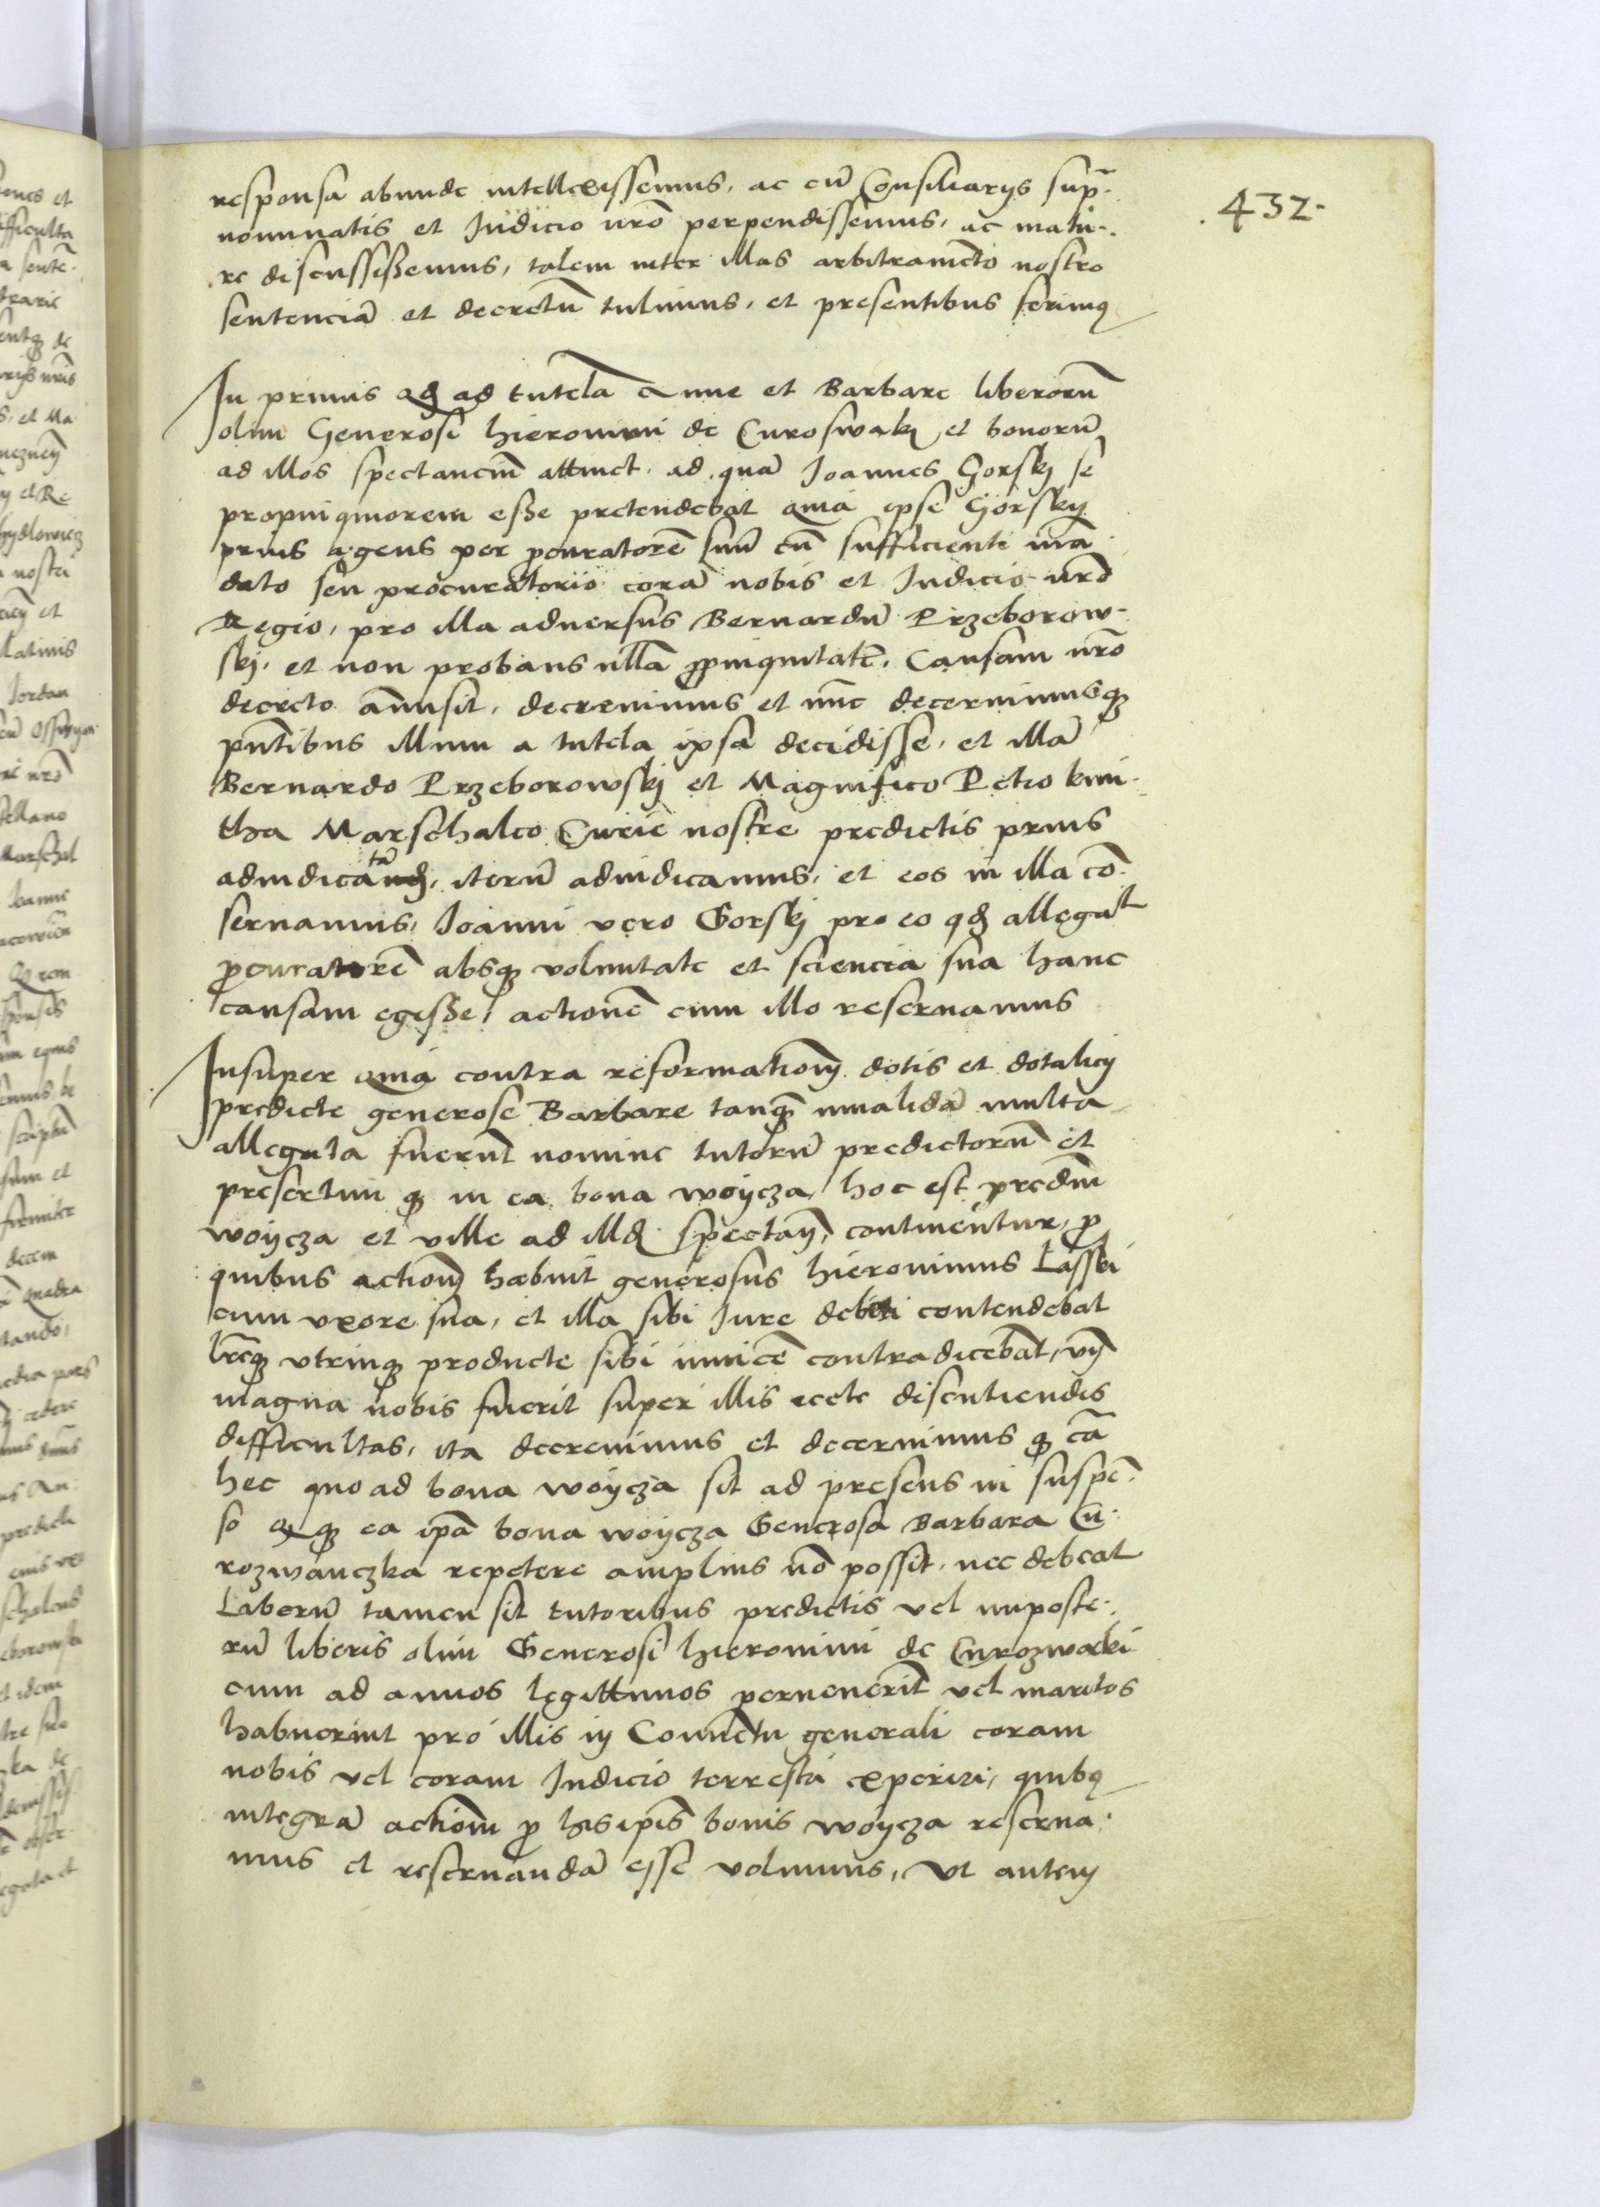 responsa abunde intellexissemus, ac cū Consiliarijs sup̄-
.432.
nominatis et Iudicio nr̄o perpendissemus, ac matu-
re discussissemus, talem inter illas arbitramēto nostro
sentenciā et decretū tulimus, et presentibus ferimꝯ
In primis qđ ad tutelā Anne et Barbare liberorū
olim Generosi Hieronimi de Curoswaky et bonorū
ad illos spectanciū attinet, ad quā Joannes Gorskj se
propinquiorem esse pretendebat quia ipse Gorsky
prius agens per ꝓcuratorē suū cū sufficienti mā-
dato seu procuratorio corā nobis et Iudicio nr̄o
Regio, pro illa aduersus Bernardū Przeborow-
skj, et non probans ullā ꝓpinquitatē, Causam nr̄o
decreto āmisit, decreuimus et nūc decernimusqꝫ
pn̄tibus illum a tutela ipsa decidisse, et illā
Bernardo Przeborowskj et Magnifico Petro kmi-
tha Marschalco Curie nostre predictis prius
adiudicatā, iterū adiudicamus, et eos in illa cō-
seruamus, Joanni vero Gorskj pro eo qđ allegat
ꝓcuratorē absqꝫ voluntate et sciencia sua hanc
causam egisse, actionē cum illo reseruamus
Insuper quia contra reformationē dotis et dotalicij
predicte generose Barbare tanqꝫ inualidā multa
allegata fuerūt nomine tutorū predictorū et
presertim qꝫ in ea bona woycza, hoc est prediū
woycza et ville ad illđ spectan̄, continentur, ꝓ
quibus actionē habuit generosus Hieronimus Łasski
cum vxore sua, et illa sibi Iure deberi contendebat
lr̄eqꝫ vtrinqꝫ producte sibi inuicē contradicebāt, vn̄
magna nobis fuerit super illis recte discutiendis
difficultas, ita decreuimus et decernimus qꝫ cā
hec quo ad bona woycza sit ad presens in suspē-
so Et qꝫ ea ipā bona woycza Generosa Barbara Cu-
rozwanczka repetere amplius nō possit, nec debeat
Laberū tamen sit tutoribus predictis vel inposte-
rū liberis olim Generosi Hieronimi de Curozwaki
cum ad annos legittimos peruenerīt vel maritos
habuerint pro illis in Conuētu generali coram
nobis vel coram Iudicio terrestri experiri, quibꝯ
integrā actionē ꝓ his ipīs bonis woycza reserua-
mus et reseruandā esse volumus, Vt autem